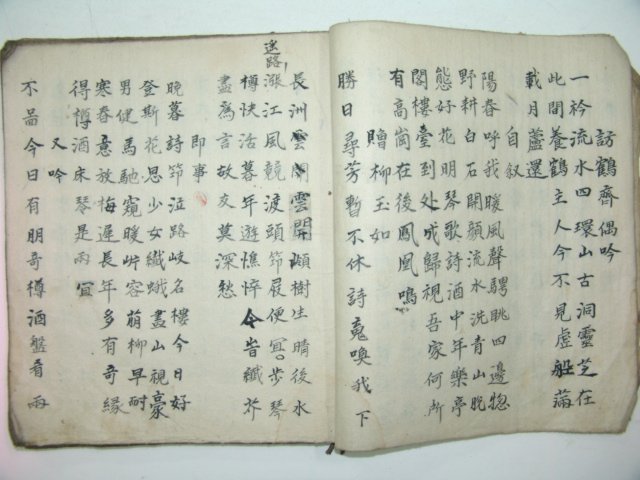 訪鶴齊偶吟
一衿流水四環山古洞靈芝在
此間養鶴主人今不見虛船滿
載月蘆還
自叙
陽春呼我暖風聲騁眺四邊惣
野耕白石開顔流水洗青山脫
態好花明琴歌詩酒中年樂亭
閣樓臺到处成歸視吾家何所
有高崗在後鳳凰鳴
贈柳玉如
勝日尋芳暫不休詩䰟喚我下
長洲雲閣雲開嶼樹生晴後水
迷路
漲江風競渡頭節屐便冝步琴
樽快活暮年遊憔悴今昔纖芥
盡爲言故友莫深愁
即事
晚暮詩節泟路岐名樓今日好
登斯花思少女纖蛾盡山視豪
男健馬馳窺暖岸容萌柳早耐
寒春意放梅遲長年多有奇緣
得樽酒床琴是兩冝
又吟
不啚今日有朋奇樽酒盤肴兩